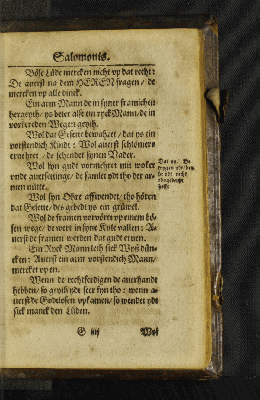 Salomonis.
Böse Lüde mercken nicht up dat recht:
De averst na dem HEREN fragen / de
mercken up alle dinck.
Ein arm Mann de in syner framicheit
hergeyth / ys beter alse ein ryck Mann / de in
vorkereden Wegen geyth.
Wol dat Gesette bewahret / dat ys ein
vorstendich Kindt: Wol averst schlömers
ernehret / de schendet synen Vader.
Wol syn gudt vormehret mit woker
unde auersettinge / de samlet ydt tho der ar-
men nütte.
Wol syn Ohre affwendet / tho hören
dat Gesette / des gebedt ys ein grüwel.
Wol de framen vorvöret up einem bö-
sen wege / de wert in syne Kule vallen: A-
verst de framen werden dat gudt erven.
Ein Ryck Mann leth sick Wyß dün-
cken: Averst ein arm vorstendich Mann /
mercket up en.
Wenn de rechtferdigen de averhandt
hebben / so geyth ydt seer fyn tho: wenn a-
verst de Godtlosen upkamen / so wendet ydt
sick manck den Lüden.
Wol